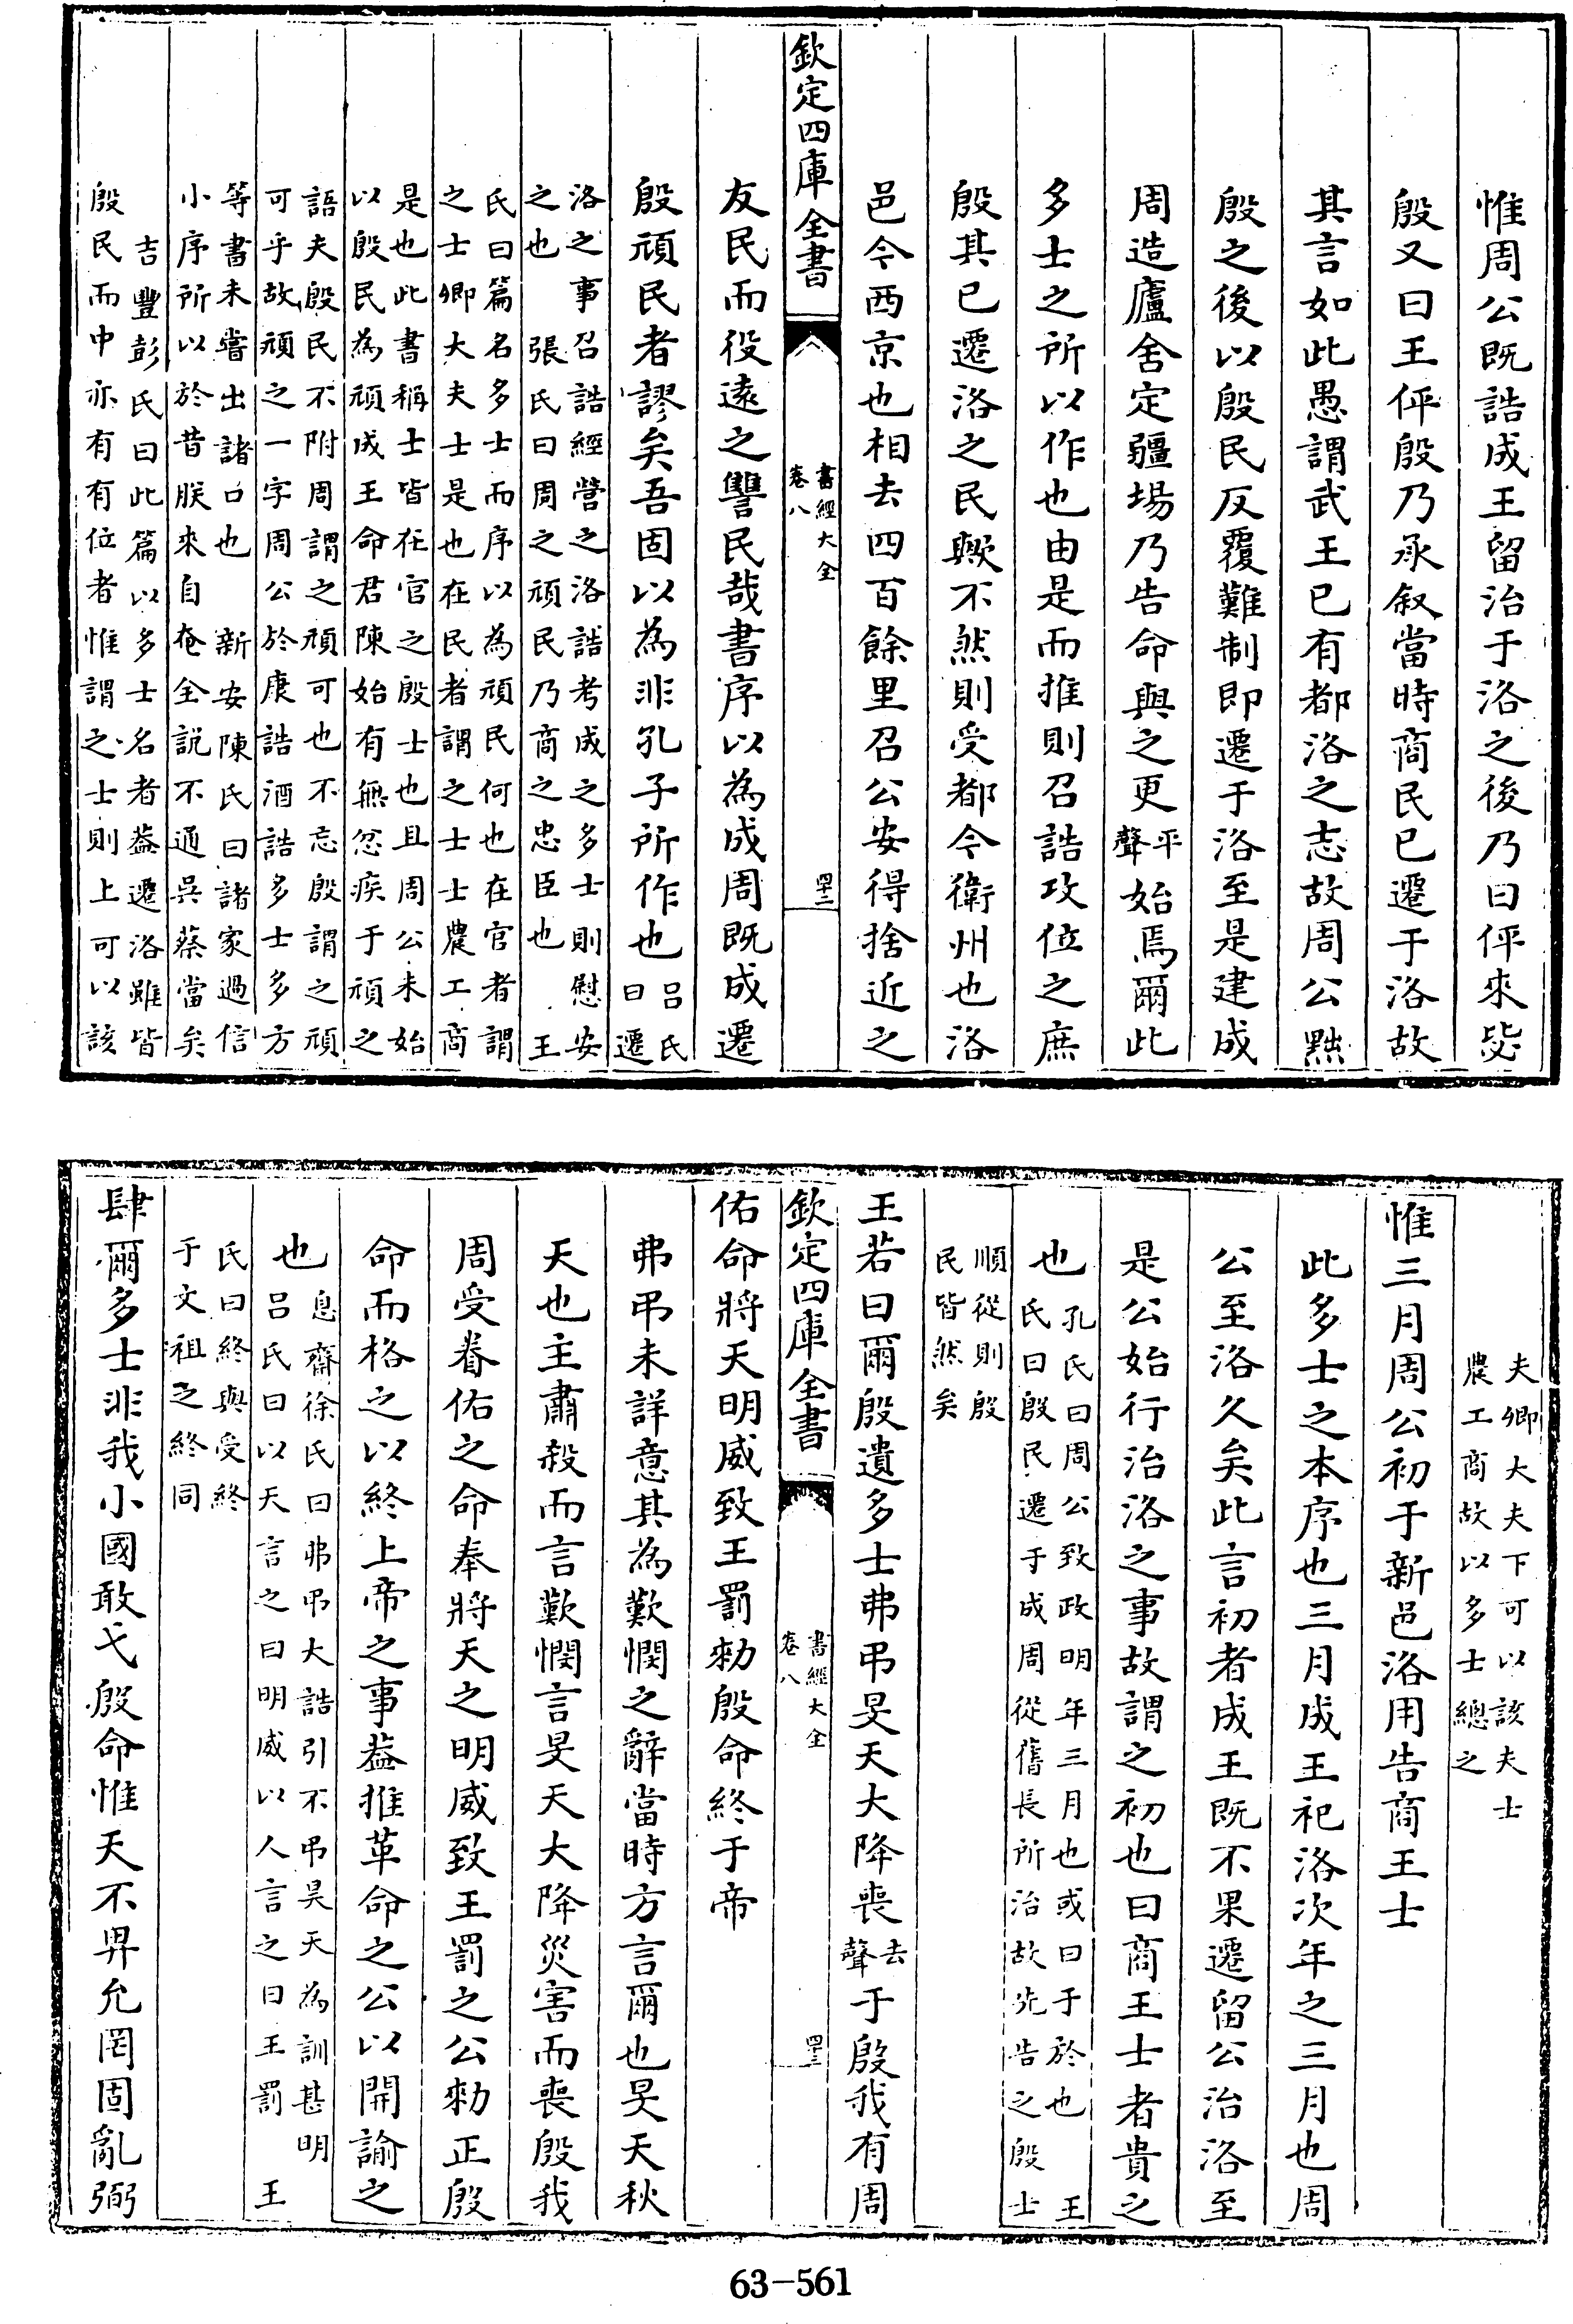 惟周公既誥成王留治于洛之後乃曰伻來毖
殷又曰王伻殷乃承叙當時商民已遷于洛故
其言如此愚謂武王已有都洛之志故周公黜
殷之後以殷民反覆難制即遷于洛至是建成
周造廬舍定疆場乃告命與之更平聲始焉爾此
多士之所以作也由是而推則召誥攻位之庶
殷其已遷洛之民歟不然則受都今衛州也洛
邑今西京也相去四百餘里召公安得捨近之
欽定四庫全書 書經大全 卷八 四十二
友民而役遠之讐民哉書序以為成周既成遷
殷頑民者謬矣吾固以為非孔子所作也呂氏曰遷
洛之事召誥經營之洛誥考成之多士則慰安
之也 張氏曰周之頑民乃商之忠臣也 王
氏曰篇名多士而序以為頑民何也在官者謂
之士卿大夫士是也在民者謂之士士農工商
是也此書稱士皆在官之殷士也且周公未始
以殷民為頑成王命君陳始有無忿疾于頑之
語夫殷民不附周謂之頑可也不忘殷謂之頑
可乎故頑之一字周公於康誥酒誥多士多方
等書未嘗出諸口也 新安陳氏曰諸家過信
小序所以於昔朕來自奄全説不通吳蔡當矣
吉豐彭氏曰此篇以多士名者葢遷洛雖皆
殷民而中亦有有位者惟謂之士則上可以該
夫卿大夫下可以該夫士
農工商故以多士總之
惟三月周公初于新邑洛用告商王士
此多士之本序也三月成王祀洛次年之三月也周
公至洛久矣此言初者成王既不果遷留公治洛至
是公始行治洛之事故謂之初也曰商王士者貴之
也孔氏曰周公致政明年三月也或曰于於也 王
氏曰殷民遷于成周從舊長所治故先告之殷士
順從則殷
民皆然矣
王若曰爾殷遺多士弗弔旻天大降喪去聲于殷我有周
欽定四庫全書 書經大全 卷八 四十三
佑命將天明威致王罰勑殷命終于帝
弗弔未詳意其為歎憫之辭當時方言爾也旻天秋
天也主肅殺而言歎憫言旻天大降災害而喪殷我
周受眷佑之命奉將天之明威致王罰之公勑正殷
命而格之以終上帝之事葢推革命之公以開諭之
也息齋徐氏曰弗弔大誥引不弔昊天為訓甚明
呂氏曰以天言之曰明威以人言之曰王罰 王
氏曰終與受終
于文祖之終同
肆爾多士非我小國敢弋殷命惟天不畀允罔固亂弼
63-561